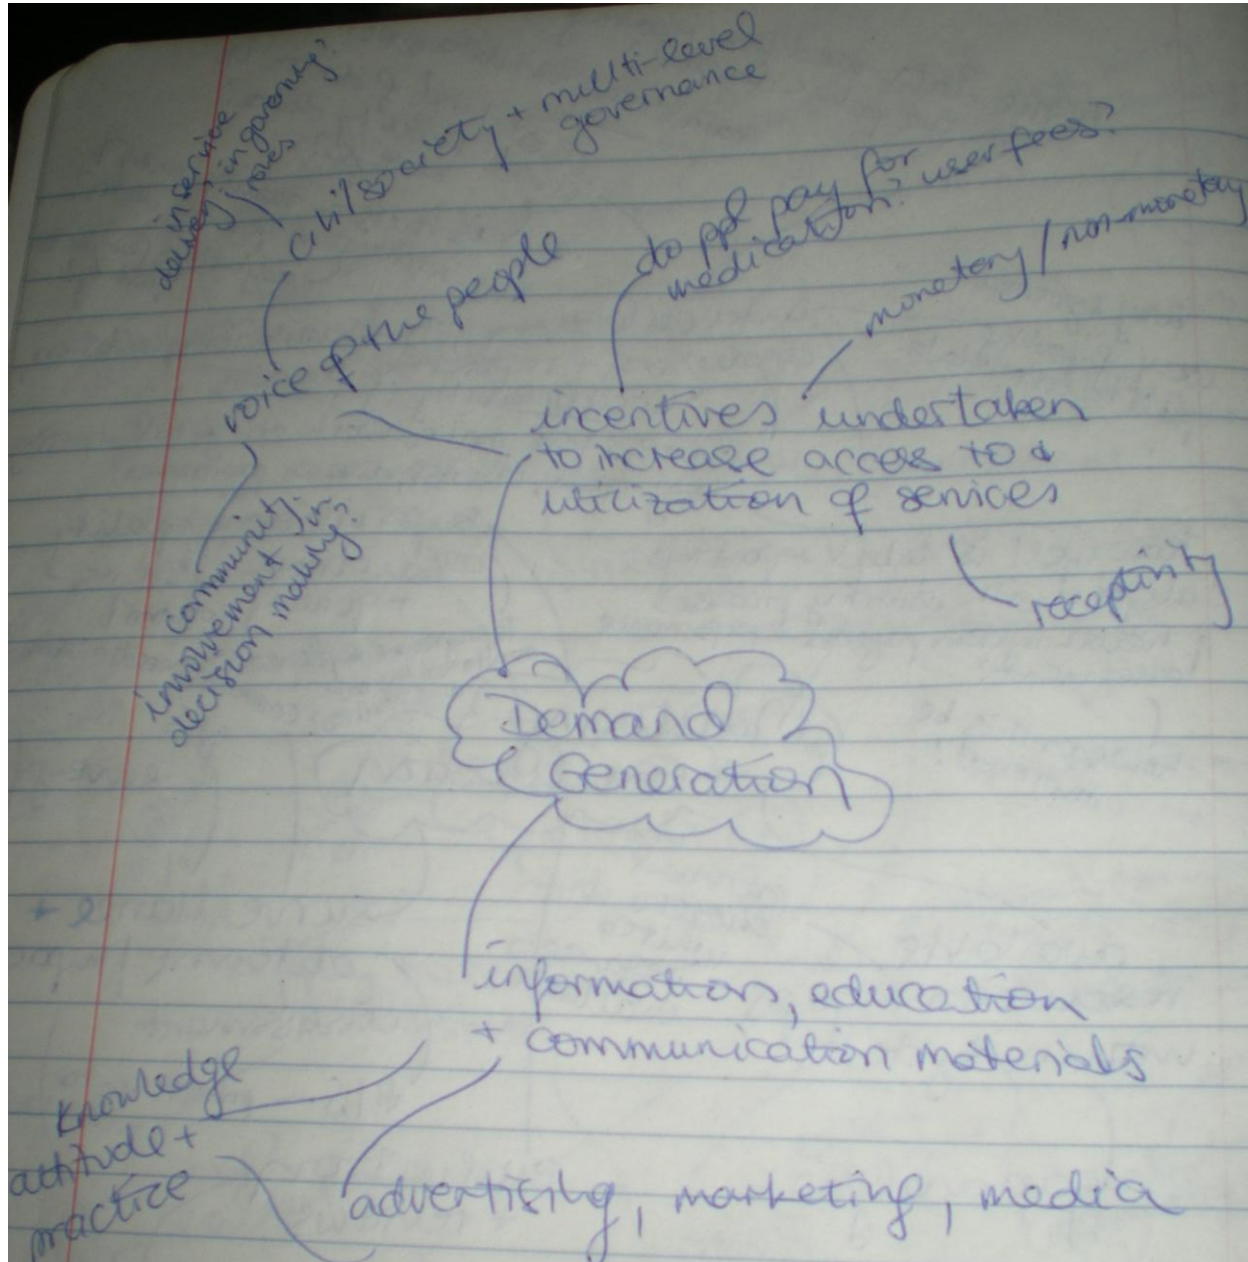 in service
delivery, in governing?
roles
civil society + multi-level
governance
voice of the people
community
involvement in
decision making?
do ppl pay for
medication? user fees?
monetary / non-monetary
incentives undertaken
to increase access to &
utilization of services
receptivity
Demand
Generation
information, education
+ communication materials
knowledge
attitude +
practice
advertising, marketing, media